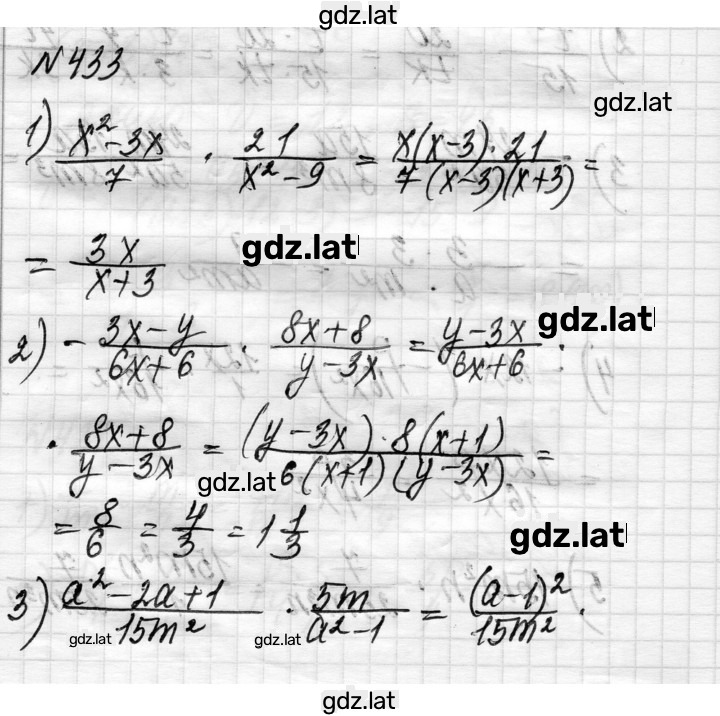 gdz.lat
№433
gdz.lat
1) (x² - 3x)/7 · 21/(x² - 9) = (x(x-3)·21)/(7(x-3)(x+3)) =
= 3x/(x+3)
gdz.lat
gdz.lat
2) - (3x-y)/(6x+6) · (8x+8)/(y-3x) = (y-3x)/(6x+6) ·
· (8x+8)/(y-3x) = ((y-3x)·8(x+1))/(6(x+1)(y-3x)) =
gdz.lat
= 8/6 = 4/3 = 1 1/3
gdz.lat
3) (a² - 2a + 1)/(15m²) · 5m/(a² - 1) = (a-1)²/(15m²) ·
gdz.lat gdz.lat
gdz.lat